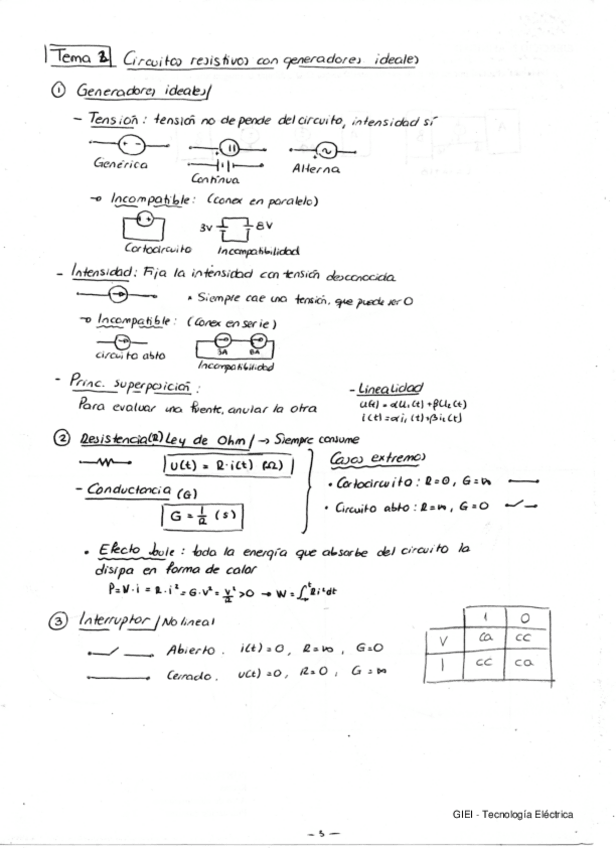 Tema 2 Circuitos resistivos con generadores ideales
① Generadores ideales/
- Tensión: tensión no depende del circuito, intensidad sí
Genérica
Continua
Alterna
→ Incompatible: (conex en paralelo)
3V 8V
Cortocircuito Incompatibilidad
- Intensidad: Fija la intensidad con tensión desconocida
* Siempre cae una tensión, que puede ser 0
→ Incompatible: (conex en serie)
3A 8A
circuito abto Incompatibilidad
- Princ. superposición:
Para evaluar una fuente, anular la otra
- Linealidad
u(t) = αu₁(t) + βu₂(t)
i(t) = αi₁(t) + βi₂(t)
② Resistencia(R) Ley de Ohm/ → Siempre consume
u(t) = R·i(t) (Ω)
- Conductancia (G)
G = 1/R (S)
Casos extremos
• Cortocircuito: R=0, G=∞
• Circuito abto: R=∞, G=0
• Efecto Joule: toda la energía que absorbe del circuito la
disipa en forma de calor
P=V·i = R·i² = G·V² = V²/R >0 → W = ∫ᵗ Ri²dt
③ Interruptor/No lineal
Abierto. i(t)=0, R=∞, G=0
Cerrado. u(t)=0, R=0, G=∞
1 0
V ca cc
I cc ca
GIEI - Tecnología Eléctrica
- 5 -